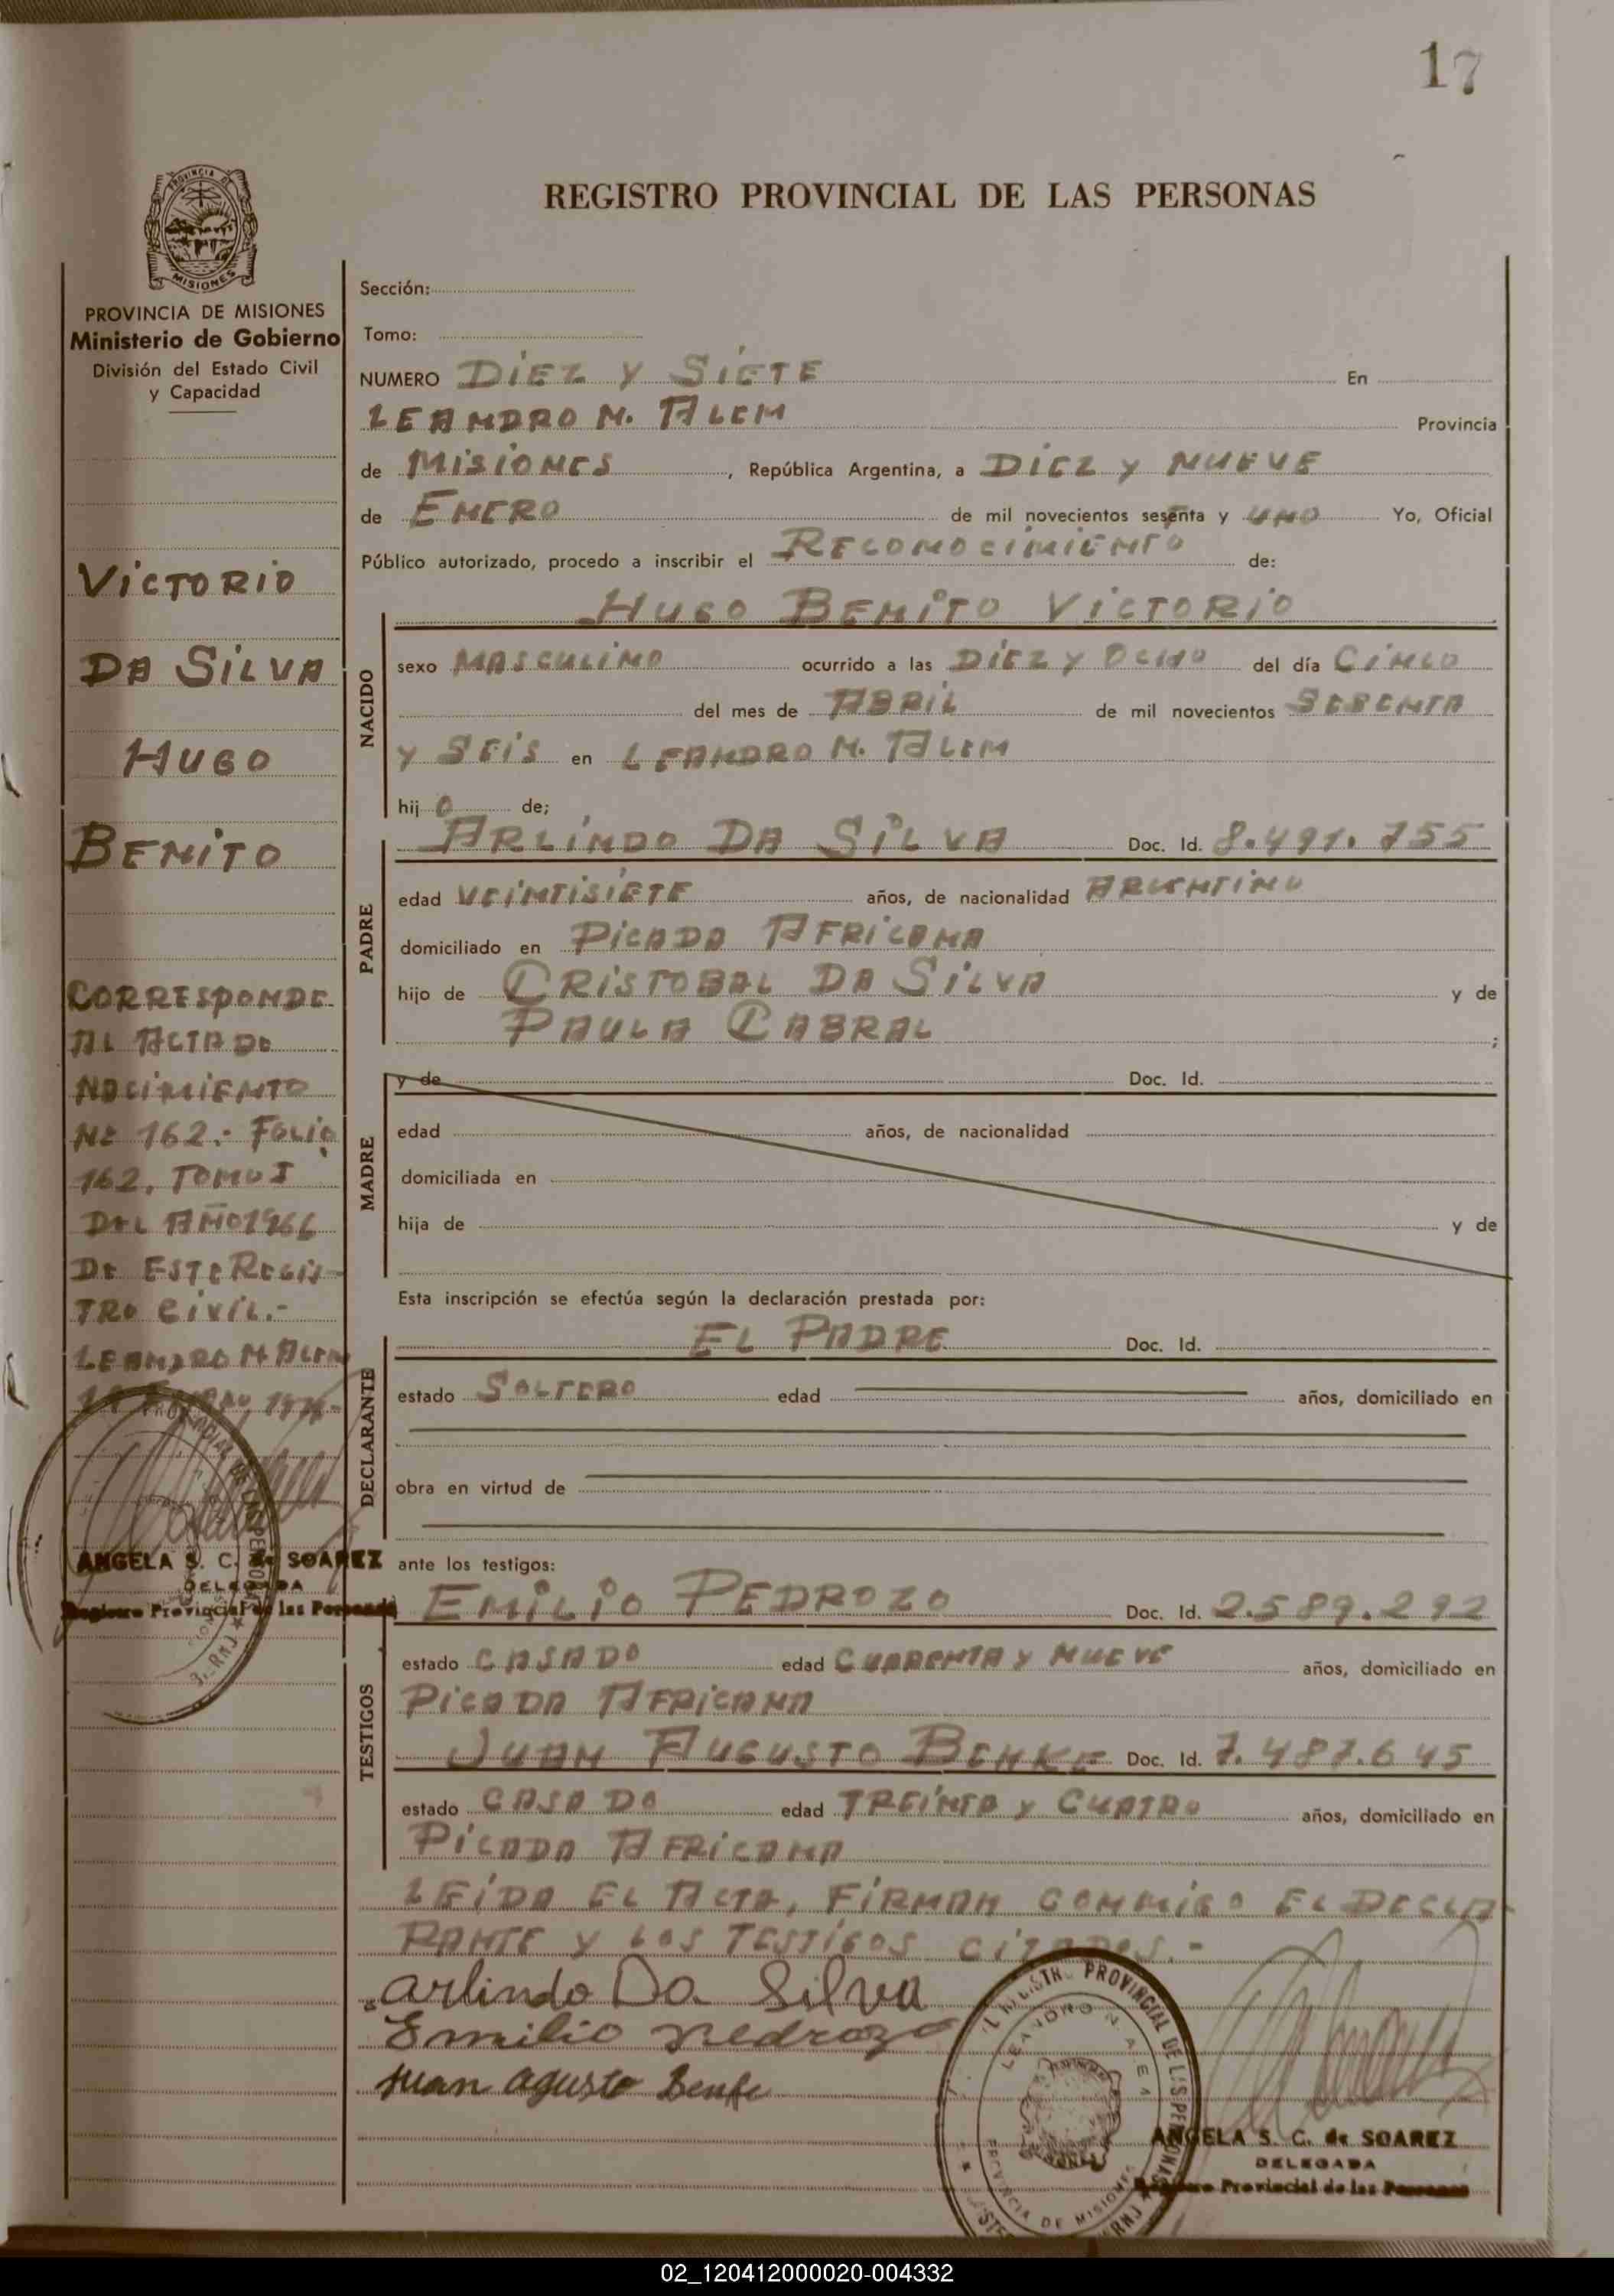 17
REGISTRO PROVINCIAL DE LAS PERSONAS
PROVINCIA DE MISIONES
Ministerio de Gobierno
División del Estado Civil
y Capacidad
VICTORIO
DA SILVA
HUGO
BENITO
CORRESPONDE
AL ACTA DE
NACIMIENTO
Nº 162.- FOLIO
162, TOMO I
DEL AÑO 1966
DE ESTE REGIS-
TRO CIVIL.-
LEANDRO N ALEM
ANGELA S. C. de SOAREZ
DELEGADA
Registro Provincial de las Personas
Sección:
Tomo:
NUMERO DIEZ Y SIETE En
LEANDRO N. ALEM Provincia
de MISIONES, República Argentina, a DIEZ Y NUEVE
de ENERO de mil novecientos sesenta y UNO Yo, Oficial
Público autorizado, procedo a inscribir el RECONOCIMIENTO de:
HUGO BENITO VICTORIO
NACIDO
sexo MASCULINO ocurrido a las DIEZ Y OCHO del día CINCO
del mes de ABRIL de mil novecientos SESENTA
Y SEIS en LEANDRO N. ALEM
hij O de;
ARLINDO DA SILVA Doc. Id. 8.491.755
PADRE
edad VEINTISIETE años, de nacionalidad ARGENTINO
domiciliado en PICADA AFRICANA
hijo de CRISTOBAL DA SILVA y de
PAULA CABRAL ;
MADRE
y de Doc. Id.
edad años, de nacionalidad
domiciliada en
hija de y de
Esta inscripción se efectúa según la declaración prestada por:
EL PADRE Doc. Id.
DECLARANTE
estado SOLTERO edad años, domiciliado en
obra en virtud de
ante los testigos:
EMILIO PEDROZO Doc. Id. 2.589.292
TESTIGOS
estado CASADO edad CUARENTA Y NUEVE años, domiciliado en
PICADA AFRICANA
JUAN AUGUSTO BENKE Doc. Id. 7.487.645
estado CASADO edad TREINTA Y CUATRO años, domiciliado en
PICADA AFRICANA
LEIDA EL ACTA, FIRMAN CONMIGO EL DECLA-
RANTE Y LOS TESTIGOS CITADOS.-
arlindo Da Silva
Emilio Pedrozo
juan agusto Benke
LEANDRO N. ALEM
PROVINCIA DE MISIONES
ANGELA S. C. de SOAREZ
DELEGADA
Registro Provincial de las Personas
02_120412000020-004332